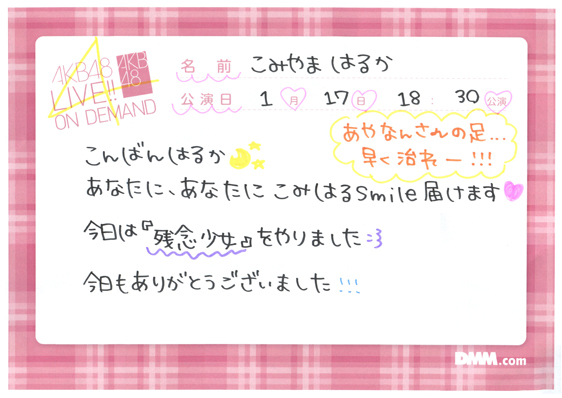 AKB48
LIVE!!
ON DEMAND
AKB
48
名前 こみやま はるか
公演日 1月 17日 18:30公演
あやなんさんの足...
早く治れー!!!
こんばんはるか
あなたに、あなたに こみはるSmile届けます
今日は『残念少女』をやりました:3
今日もありがとうございました!!!
DMM.com